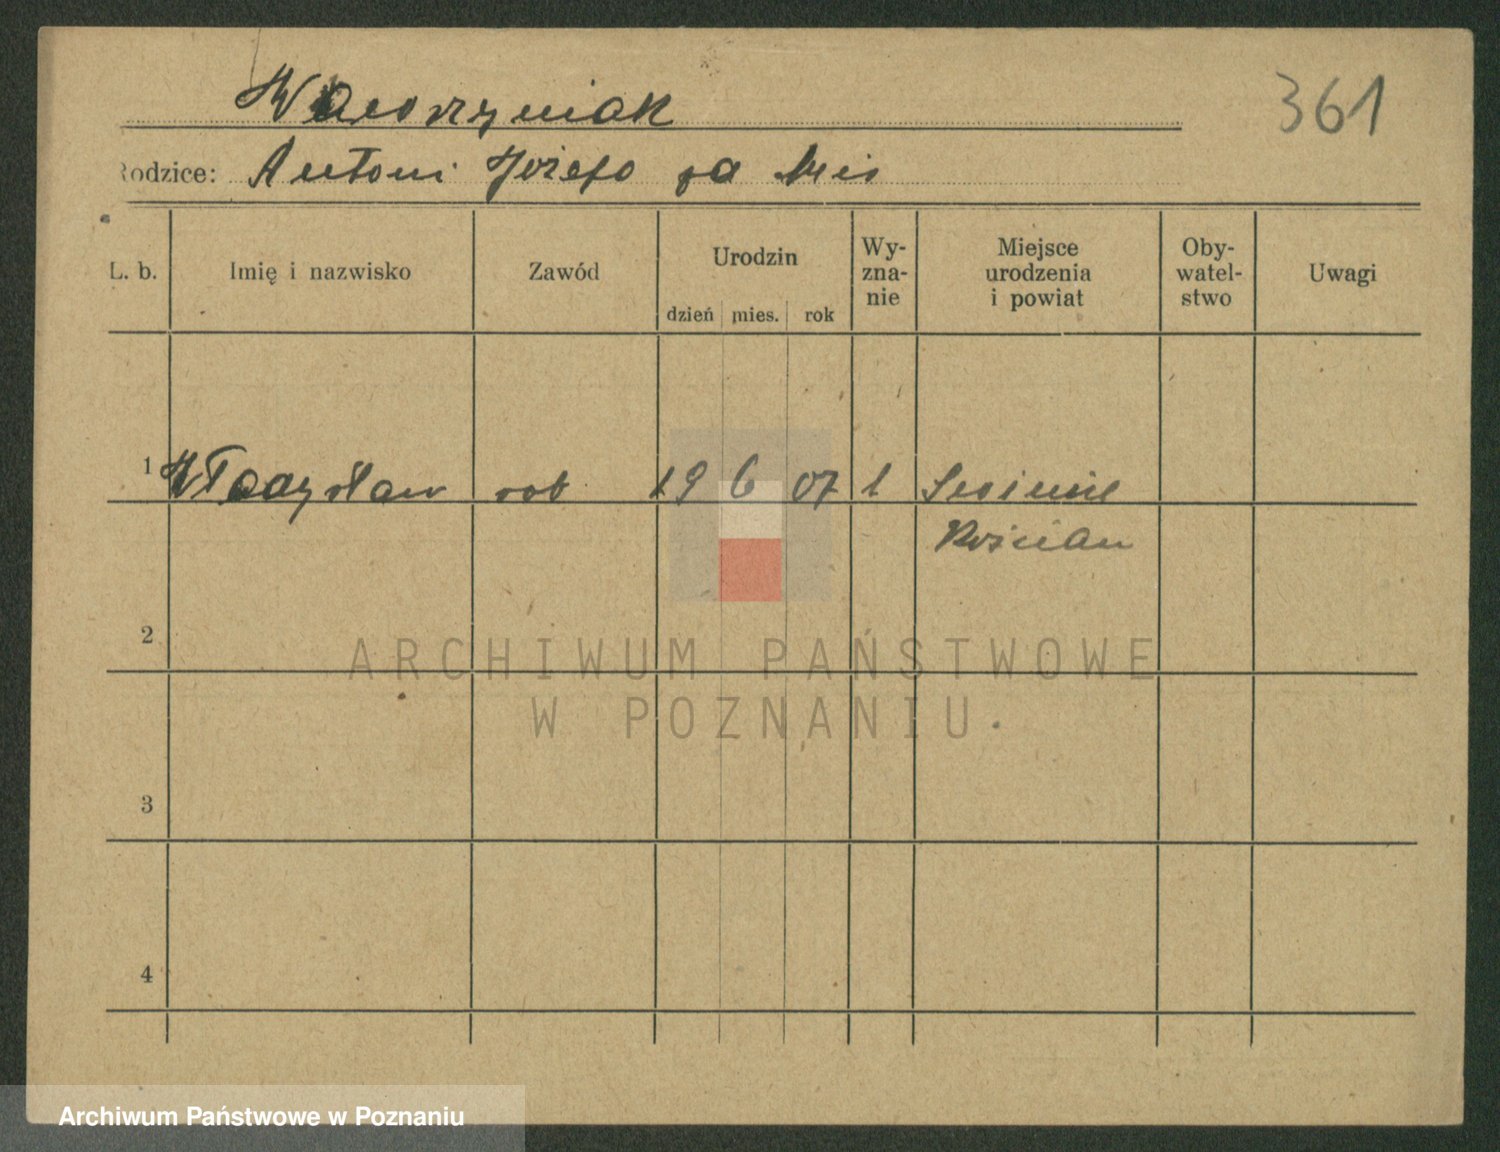 Wawrzyniak
361
Rodzice: Antoni Józefa za Mis
L. b.
Imię i nazwisko
Zawód
Urodzin
dzień mies. rok
Wy-
zna-
nie
Miejsce
urodzenia
i powiat
Oby-
watel-
stwo
Uwagi
1 Władysław rob 19 6 07 1
Kościan
2
3
4
ARCHIWUM PAŃSTWOWE
W POZNANIU
Archiwum Państwowe w Poznaniu